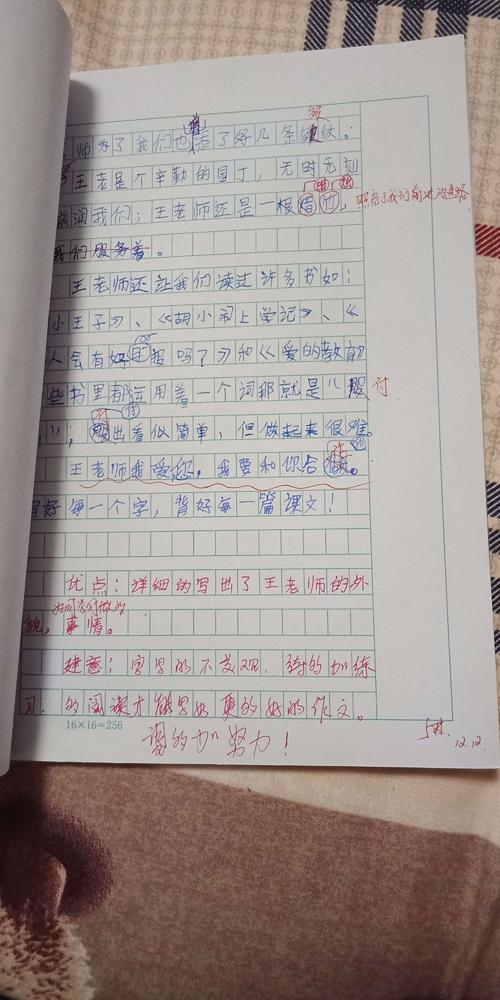 师为了我们也添了好几条皱纹。
王老是个辛勤的园丁,无时无刻
滋润我们;王老师还是一根蜡烛,照亮了我们前进的道路
我们服务着。
王老师还让我们读过许多书如:
小王子》、《胡小闹上学记》、《
人会有好报吗?》和《爱的教育》
些书里都运用着一个词那就是“
”;付出看似简单,但做起来很难。
王老师我爱您,我要和你合做。
写好每一个字,背好每一篇课文!
优点:详细的写出了王老师的外
貌,事情。
建意:字写的不美观,的加练
习.的阅读才能写好更的好的作文。
16×16=256
的加努力!
12.12